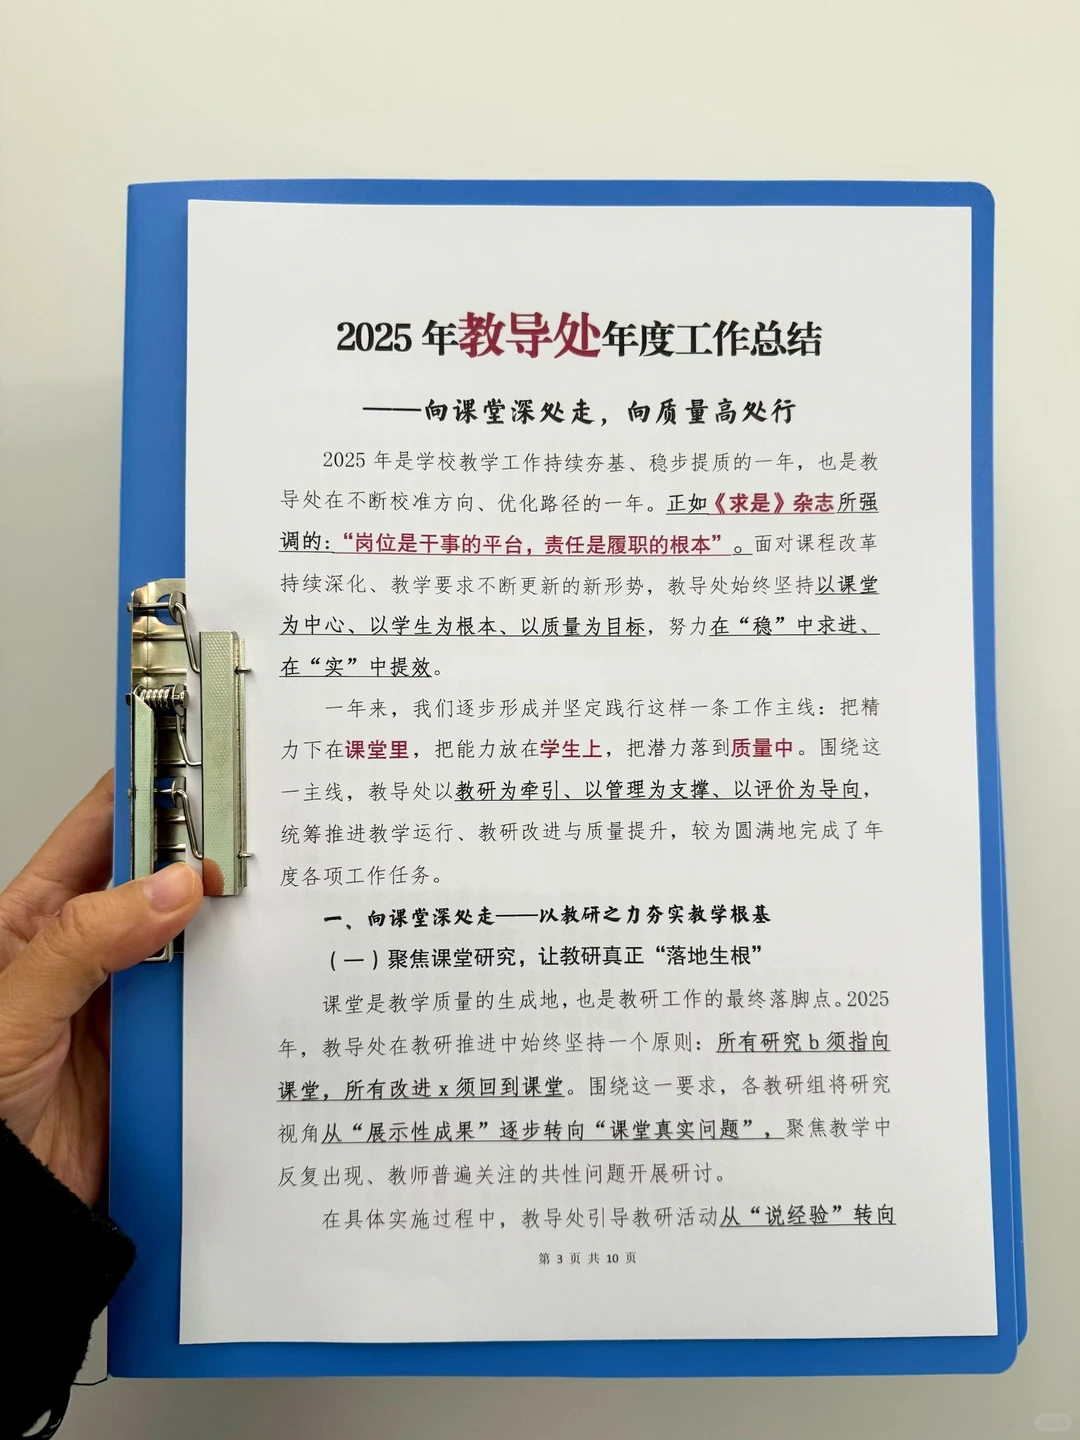 2025 年教导处年度工作总结
——向课堂深处走，向质量高处行
2025 年是学校教学工作持续夯基、稳步提质的一年，也是教
导处在不断校准方向、优化路径的一年。正如《求是》杂志所强
调的：“岗位是干事的平台，责任是履职的根本”。面对课程改革
持续深化、教学要求不断更新的新形势，教导处始终坚持以课堂
为中心、以学生为根本、以质量为目标，努力在“稳”中求进、
在“实”中提效。
一年来，我们逐步形成并坚定践行这样一条工作主线：把精
力下在课堂里，把能力放在学生上，把潜力落到质量中。围绕这
一主线，教导处以教研为牵引、以管理为支撑、以评价为导向，
统筹推进教学运行、教研改进与质量提升，较为圆满地完成了年
度各项工作任务。
一、向课堂深处走——以教研之力夯实教学根基
（一）聚焦课堂研究，让教研真正“落地生根”
课堂是教学质量的生成地，也是教研工作的最终落脚点。2025
年，教导处在教研推进中始终坚持一个原则：所有研究 b 须指向
课堂，所有改进 x 须回到课堂。围绕这一要求，各教研组将研究
视角从“展示性成果”逐步转向“课堂真实问题”，聚焦教学中
反复出现、教师普遍关注的共性问题开展研讨。
在具体实施过程中，教导处引导教研活动从“说经验”转向
第 3 页 共 10 页